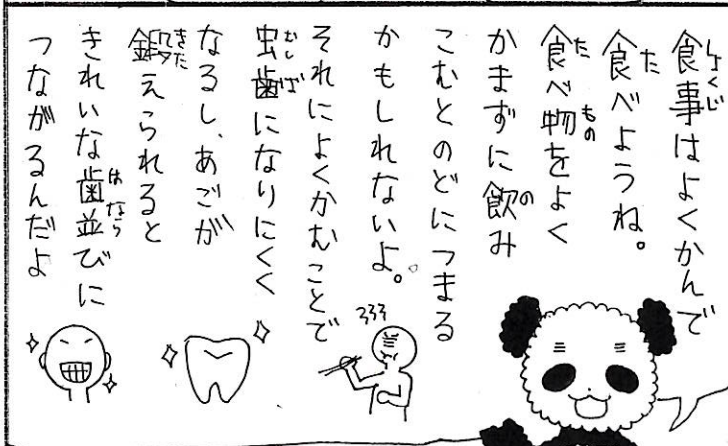 食事はよくかんで
食べようね。
食べ物をよく
かまずに飲み
こむとのどにつまる
かもしれないよ。
それによくかむことで
虫歯になりにくく
なるし、あごが
鍛えられると
きれいな歯並びに
つながるんだよ